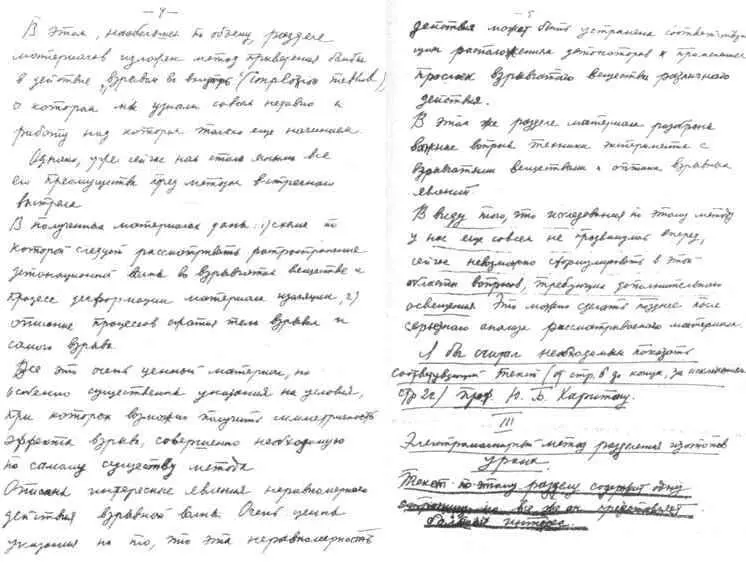 – 4 –
В этом, наибольшем по объему, разделе
материалов изложен метод приведения бомбы
в действие "взрывом во внутрь" (Implosion method),
о котором мы узнали совсем недавно и
работу над которым только еще начинаем.
Однако, уже сейчас нам стало ясным все
его преимущества перед методом встречного
выстрела.
В полученных материалах даны: 1) схема по
которой следует рассматривать распространение
детонационной волны во взрывчатом веществе и
процесс деформации материала изоляции 2)
описание процессов сжатия тела взрыва и
самого взрыва.
Все это очень ценный материал, но
особенно существенны указания на условия,
при которых возможно получить симметричность
эффекта взрыва, совершенно необходимую
по самому существу метода
Описаны интересные явления неравномерного
действия взрывной волны. Очень ценны
указания на то, что эта неравномерность
– 5 –
действия может быть устранена соответствую-
щим расположением детонаторов и применением
прослоек взрывчатого вещества различного
действия.
В этом же разделе материала разобраны
важные вопросы техники эксперимента с
взрывчатыми веществами и оптика взрывных
явлений.
В виду того, что исследования по этому методу
у нас еще совсем не продвинулись вперед,
сейчас невозможно сформулировать в этой
области вопросов, требующих дополнительного
освещения. Это можно сделать позднее после
серьезного анализа рассматриваемого материала.
Я бы считал необходимым показать
соответствующий текст (от стр. 6 до конца, за исключением
стр 22) проф. Ю. Б. Харитону.
III
Электромагнитный метод разделения изотопов
урана.
Текст по этому разделу содержит одну
страницу но все же он представляет
большой интерес